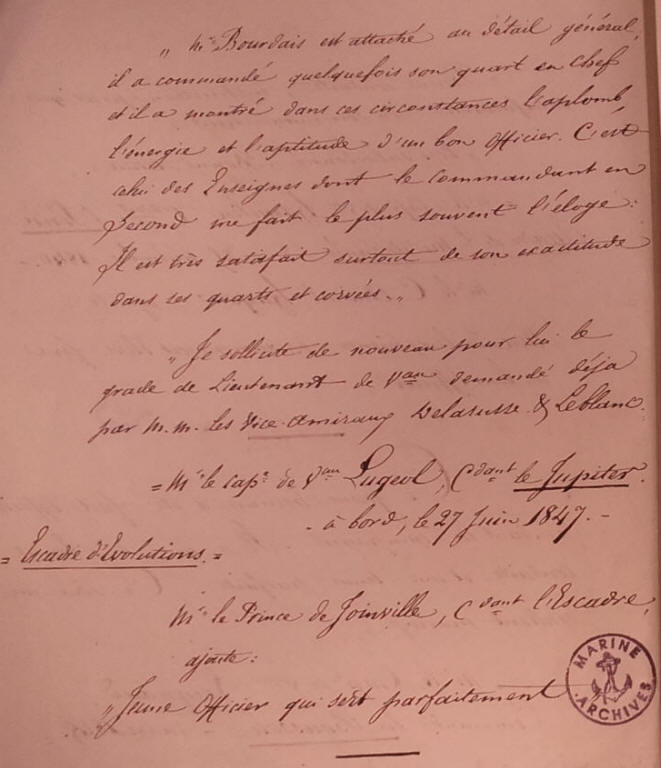 „ Mr. Bourdais est attaché au détail général,
il a commandé quelquefois son quart en chef
et il a montré dans ces circonstances l'aplomb,
l'énergie et l'aptitude d'un bon Officier. C'est
celui des Enseignes dont le commandant en
second me fait le plus souvent l'éloge :
Il est très satisfait surtout de son exactitude
dans ses quarts et corvées. „
„ Je sollicite de nouveau pour lui le
grade de Lieutenant de Vau demandé déja
par M.M. les Vice-Amiraux Delasusse & Leblanc.
= Mr. le cap.e de Vau Lugeol, Cdant le Jupiter.
- à bord, le 27 Juin 1847. -
= Escadre d'Evolutions. =
Mr. le Prince de Joinville, Cdant l'Escadre,
ajoute :
„ Jeune Officier qui sert parfaitement „
MARINE
ARCHIVES